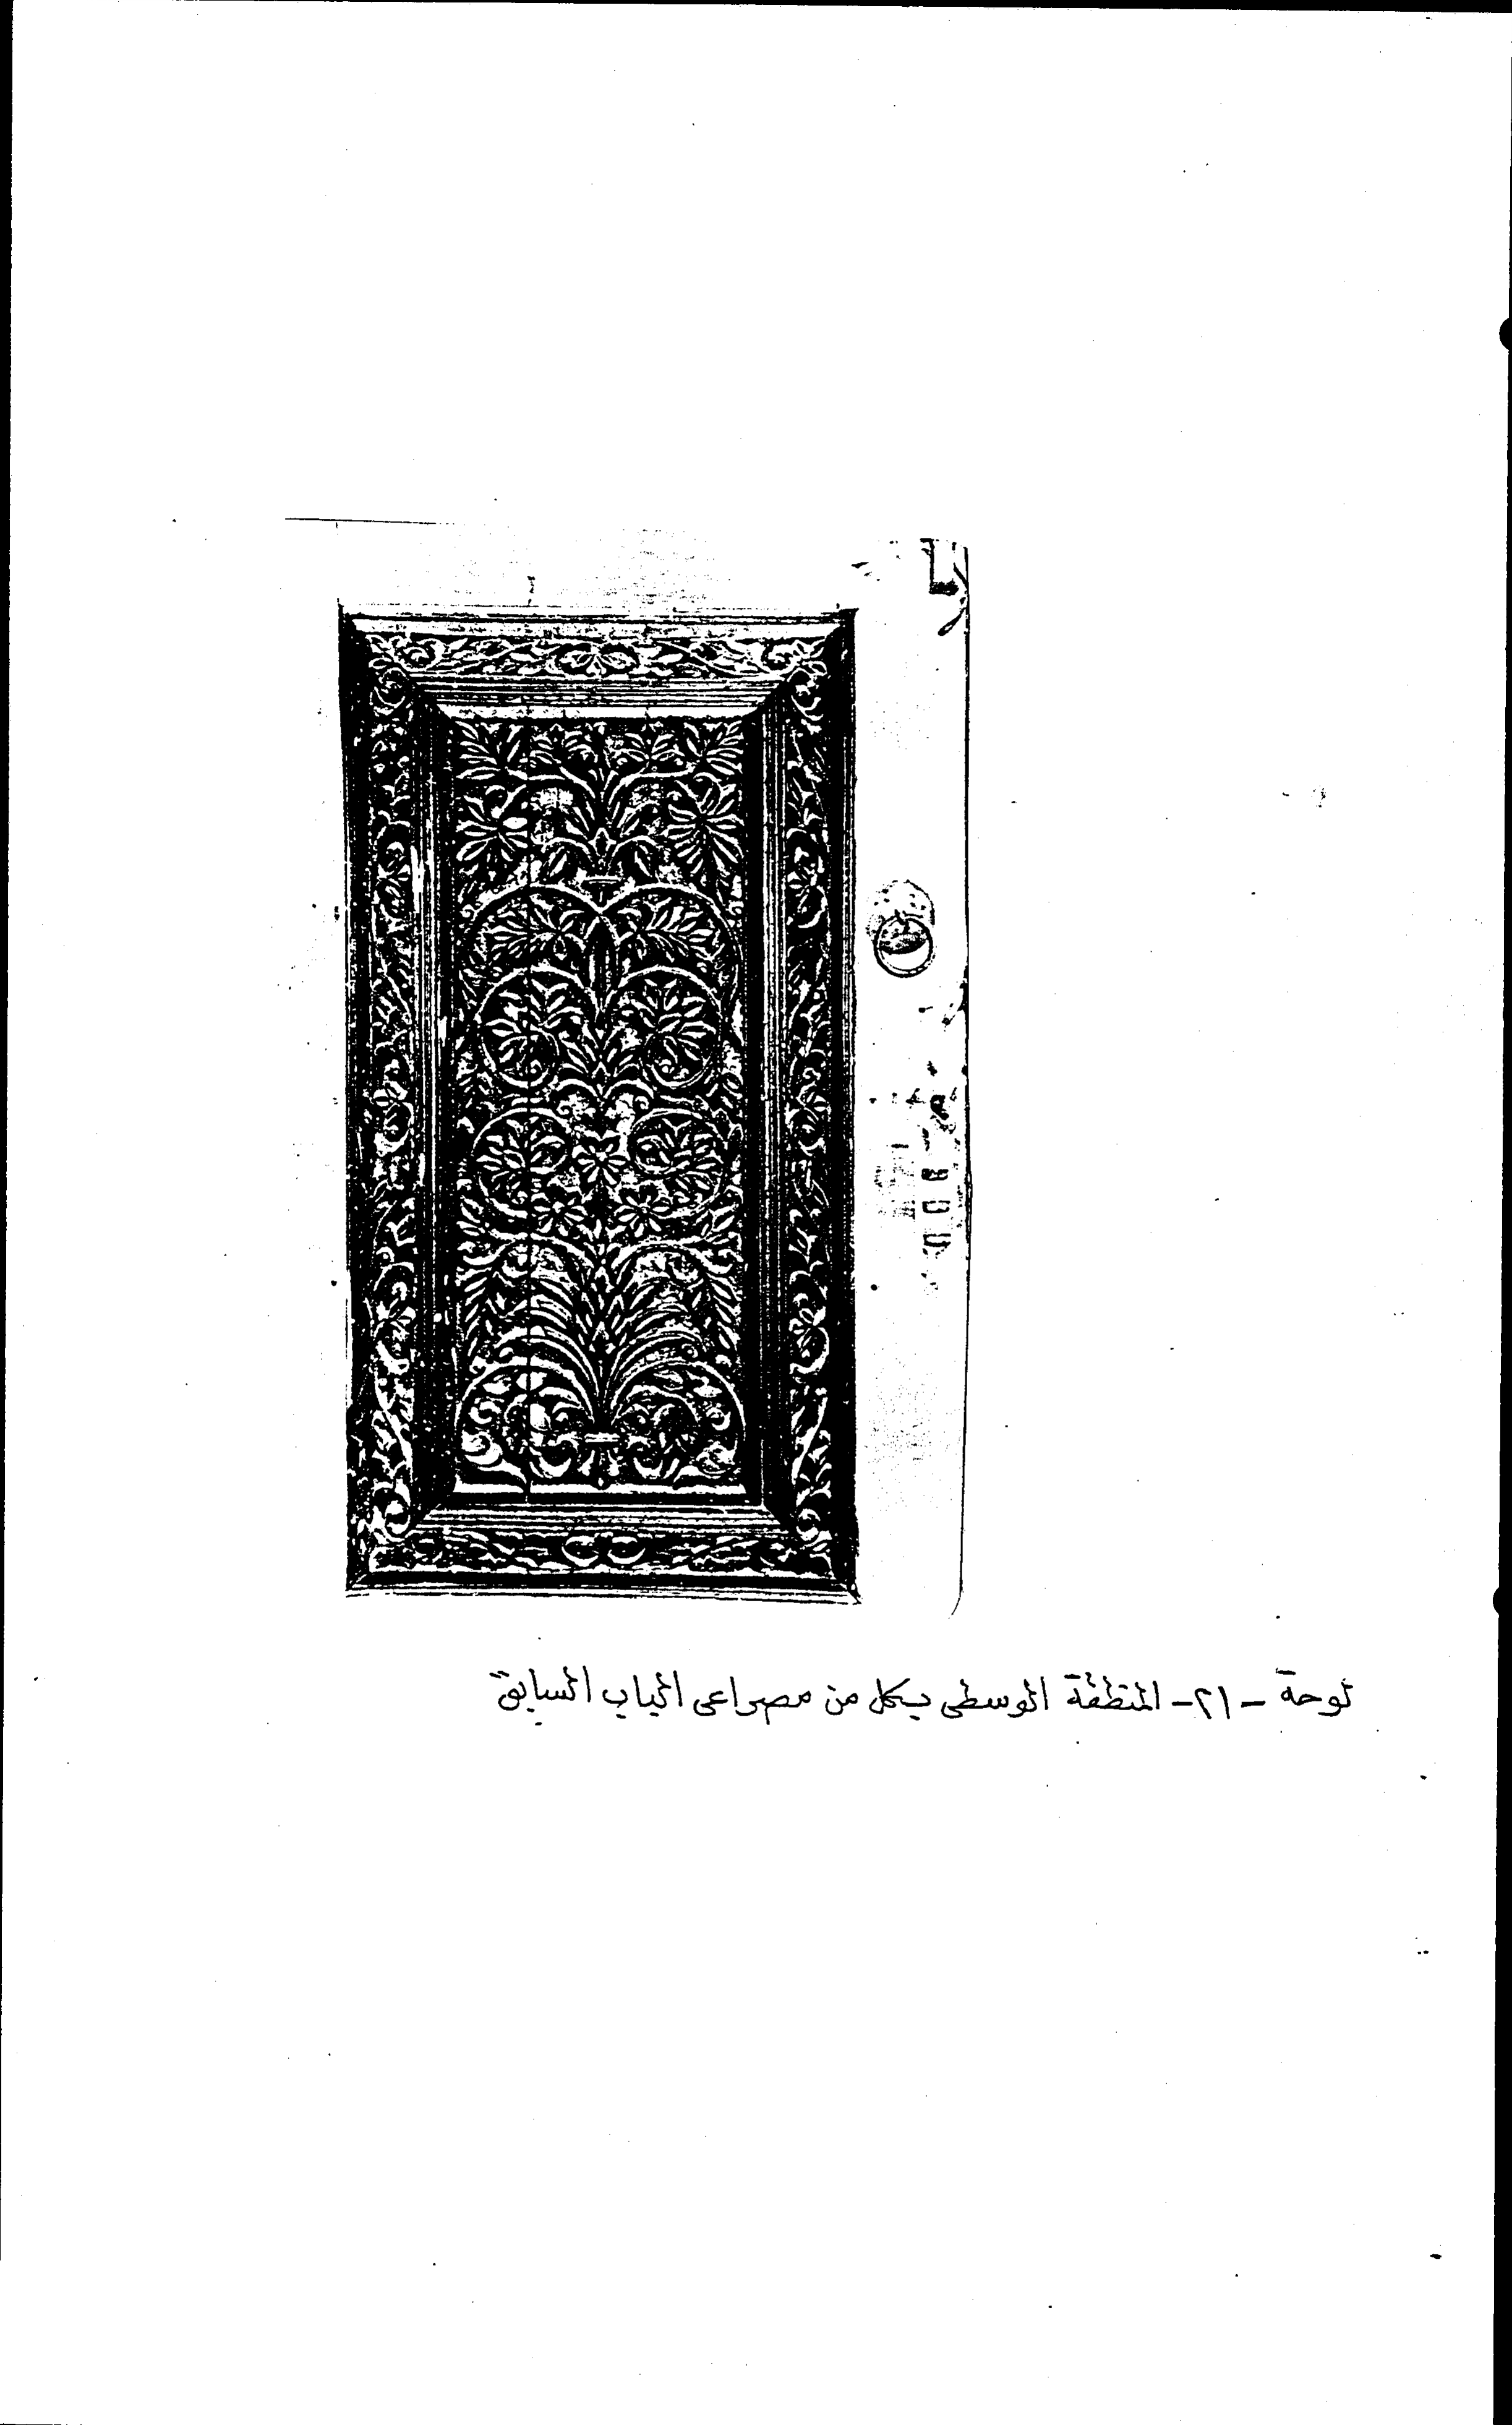 لوحة - ٢١ - المنطقة الوسطى بكل من مصراعى الباب السابق